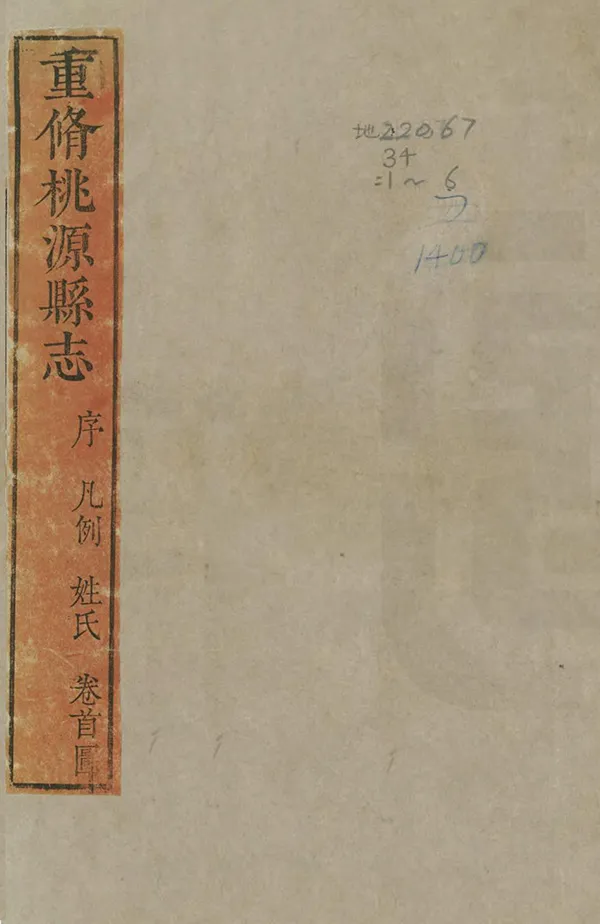 重脩桃源縣志
序 凡例 姓氏 卷首圖
地220.67
34
:1~6
1400